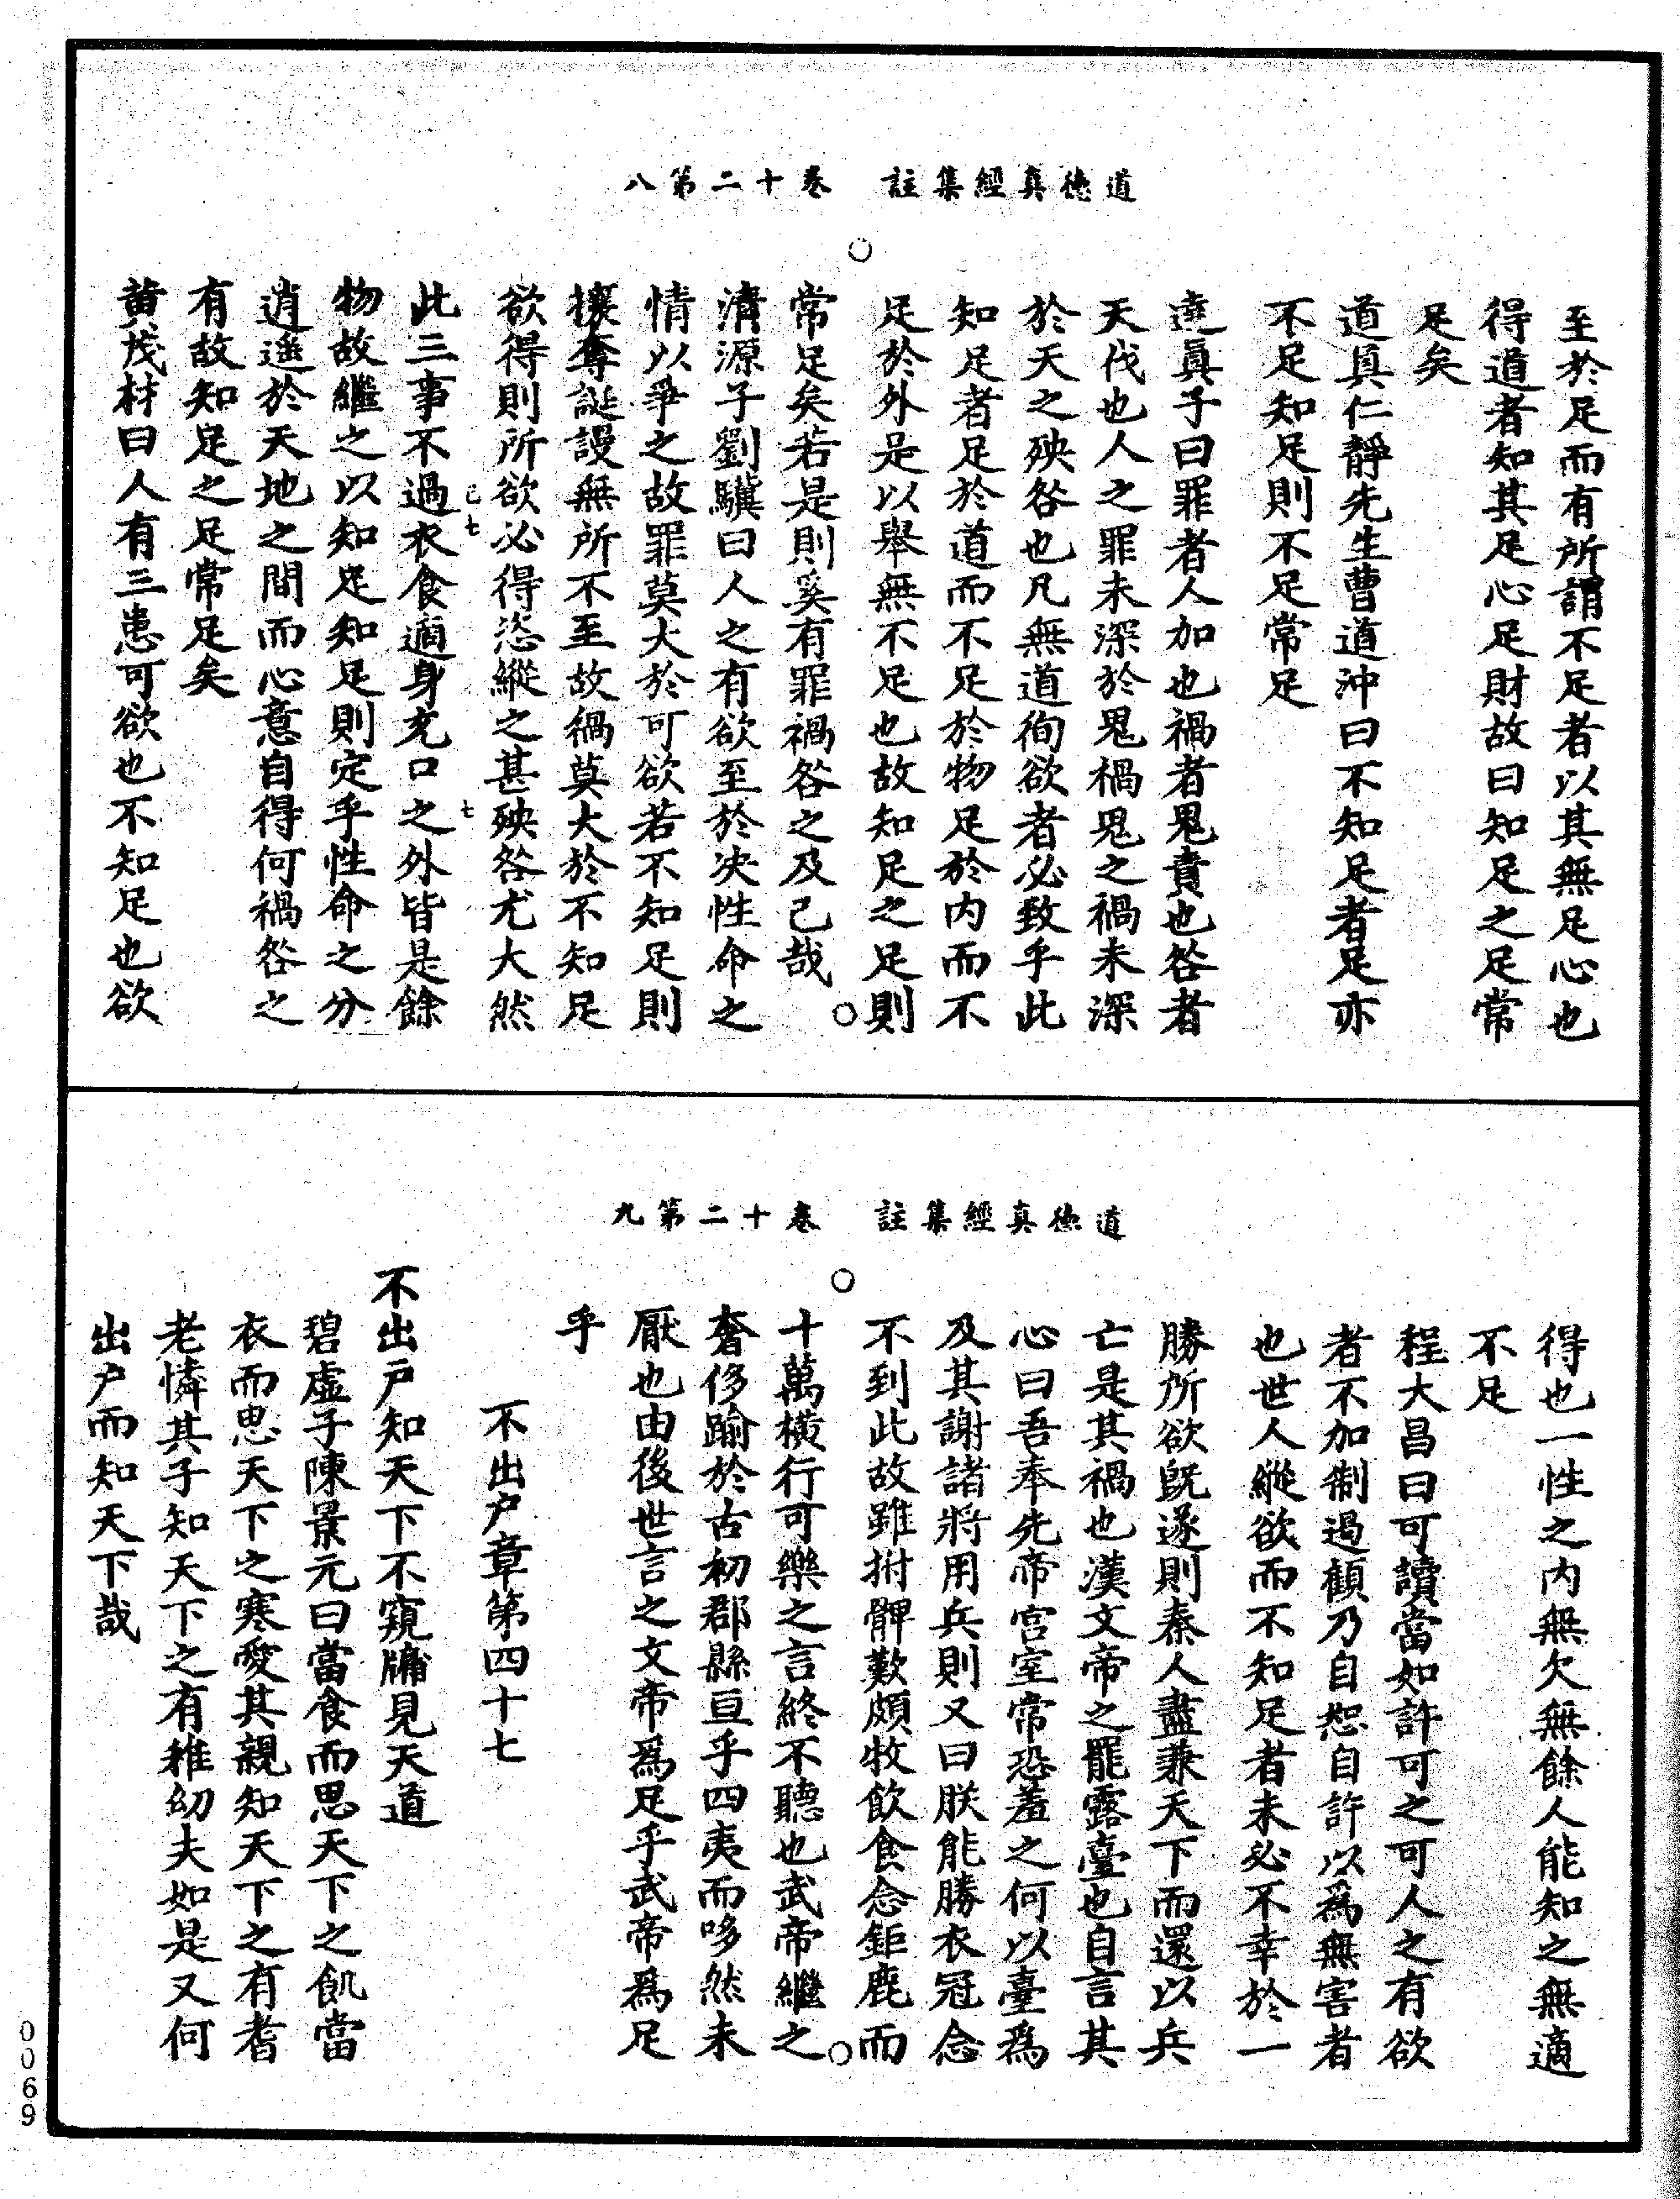 道德真經集註　卷十二第八
至於足而有所謂不足者以其無足心也
得道者知其足心足財故曰知足之足常
足矣
道真仁靜先生曹道沖曰不知足者足亦
不足知足則不足常足
達真子曰罪者人加也禍者鬼責也咎者
天伐也人之罪未深於鬼禍鬼之禍未深
於天之殃咎也凡無道徇欲者必致乎此
知足者足於道而不足於物足於内而不
足於外是以舉無不足也故知足之足則
常足矣若是則奚有罪禍咎之及己哉
清源子劉驥曰人之有欲至於决性命之
情以爭之故罪莫大於可欲若不知足則
攘奪誕謾無所不至故禍莫大於不知足
欲得則所欲必得恣縱之甚殃咎尤大然
己七　七
此三事不過衣食適身充口之外皆是餘
物故繼之以知足知足則定乎性命之分
逍遥於天地之間而心意自得何禍咎之
有故知足之足常足矣
黄茂材曰人有三患可欲也不知足也欲
道德真經集註　卷十二第九
得也一性之内無欠無餘人能知之無適
不足
程大昌曰可讀當如許可之可人之有欲
者不加制遏顧乃自恕自許以爲無害者
也世人縱欲而不知足者未必不幸於一
勝所欲既遂則秦人盡兼天下而還以兵
亡是其禍也漢文帝之罷露臺也自言其
心曰吾奉先帝宫室常恐羞之何以臺爲
及其謝諸將用兵則又曰朕能勝衣冠念
不到此故雖拊髀歎頗牧飲食念鉅鹿而
十萬橫行可樂之言終不聽也武帝繼之
奢侈踰於古初郡縣亘乎四夷而哆然未
厭也由後世言之文帝爲足乎武帝爲足
乎
不出户章第四十七
不出戸知天下不窺牖見天道
碧虚子陳景元曰當食而思天下之飢當
衣而思天下之寒愛其親知天下之有耆
老憐其子知天下之有稚幼夫如是又何
出户而知天下哉
0069